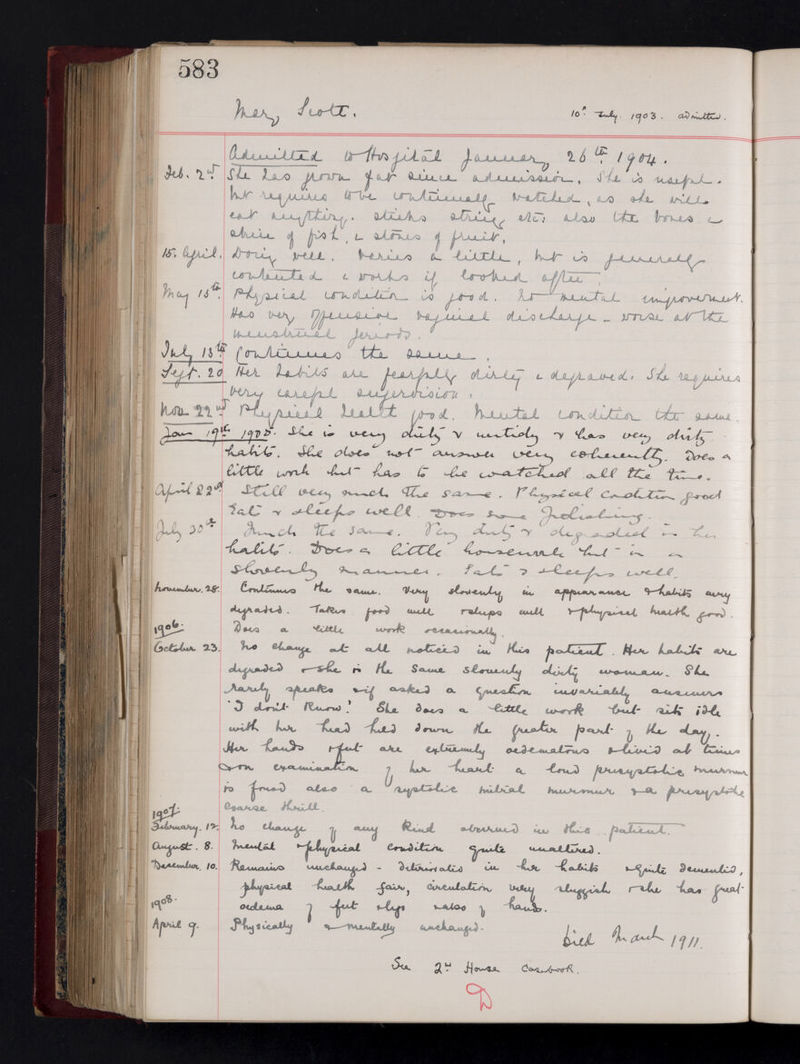 583
Mary Scott. 10th July. 1903. admitted.
Admitted to Hospital January 26th 1904.
Feb. 2nd She has grown fat since admission. She is useful.
but requires to be continually watched, as she will
eat anything. sticks string etc: also the bones &
of fish, & stones of fruit.
15. April. Doing well. Varies a little, but is generally
contented & works if looked after.
May 15th Physical condition is good. No mental improvement.
Has very offensive vaginal discharge - worse at the
menstrual periods.
July 18th Continues the same.
Sept. 20 Her habits are fearfully dirty & depraved. She requires
very careful supervision.
Nov 22nd Physical health good. Mental condition the same.
Jan 19th 1905. She is very dirty & untidy & has very dirty
habits. She does not answer very coherently. Does a
little work but has to be watched all the time.
April 22nd Still very much the same. Physical Condition good
Eats & sleeps well. Does some polishing.
July 30th Much the same. Very dirty & degraded in her
habits. Does a little housework but in a
slovenly manner. Eats & sleeps well.
November. 28. Continues the same. Very slovenly in appearance & habits very
degraded. Takes food well & sleeps well & physical health good.
Does a little work occasionally.
1906.
October 23. No change at all noticed in this patient. Her habits are
degraded & she is the same slovenly dirty woman. She
rarely speaks & if asked a question invariably answers
"I don't know". She does a little work but sits idle
with her head hid down the greater part of the day.
Her hands & feet are extremely oedematous & livid at times
& on examination of her heart a loud presystolic murmur
is found also a systolic mitral murmur & a presystolic
coarse thrill.
1907.
February. 12. No change of any kind observed in this patient.
August. 8. Mental & physical condition quite unaltered.
December. 10. Remains unchanged - deteriorated in her habits & quite demented,
physical health fair, circulation very sluggish & she has great
oedema of feet & legs & also of hands.
1908.
April 9. Physically & mentally unchanged.
Died March 1911.
See 2nd House Casebook.
D